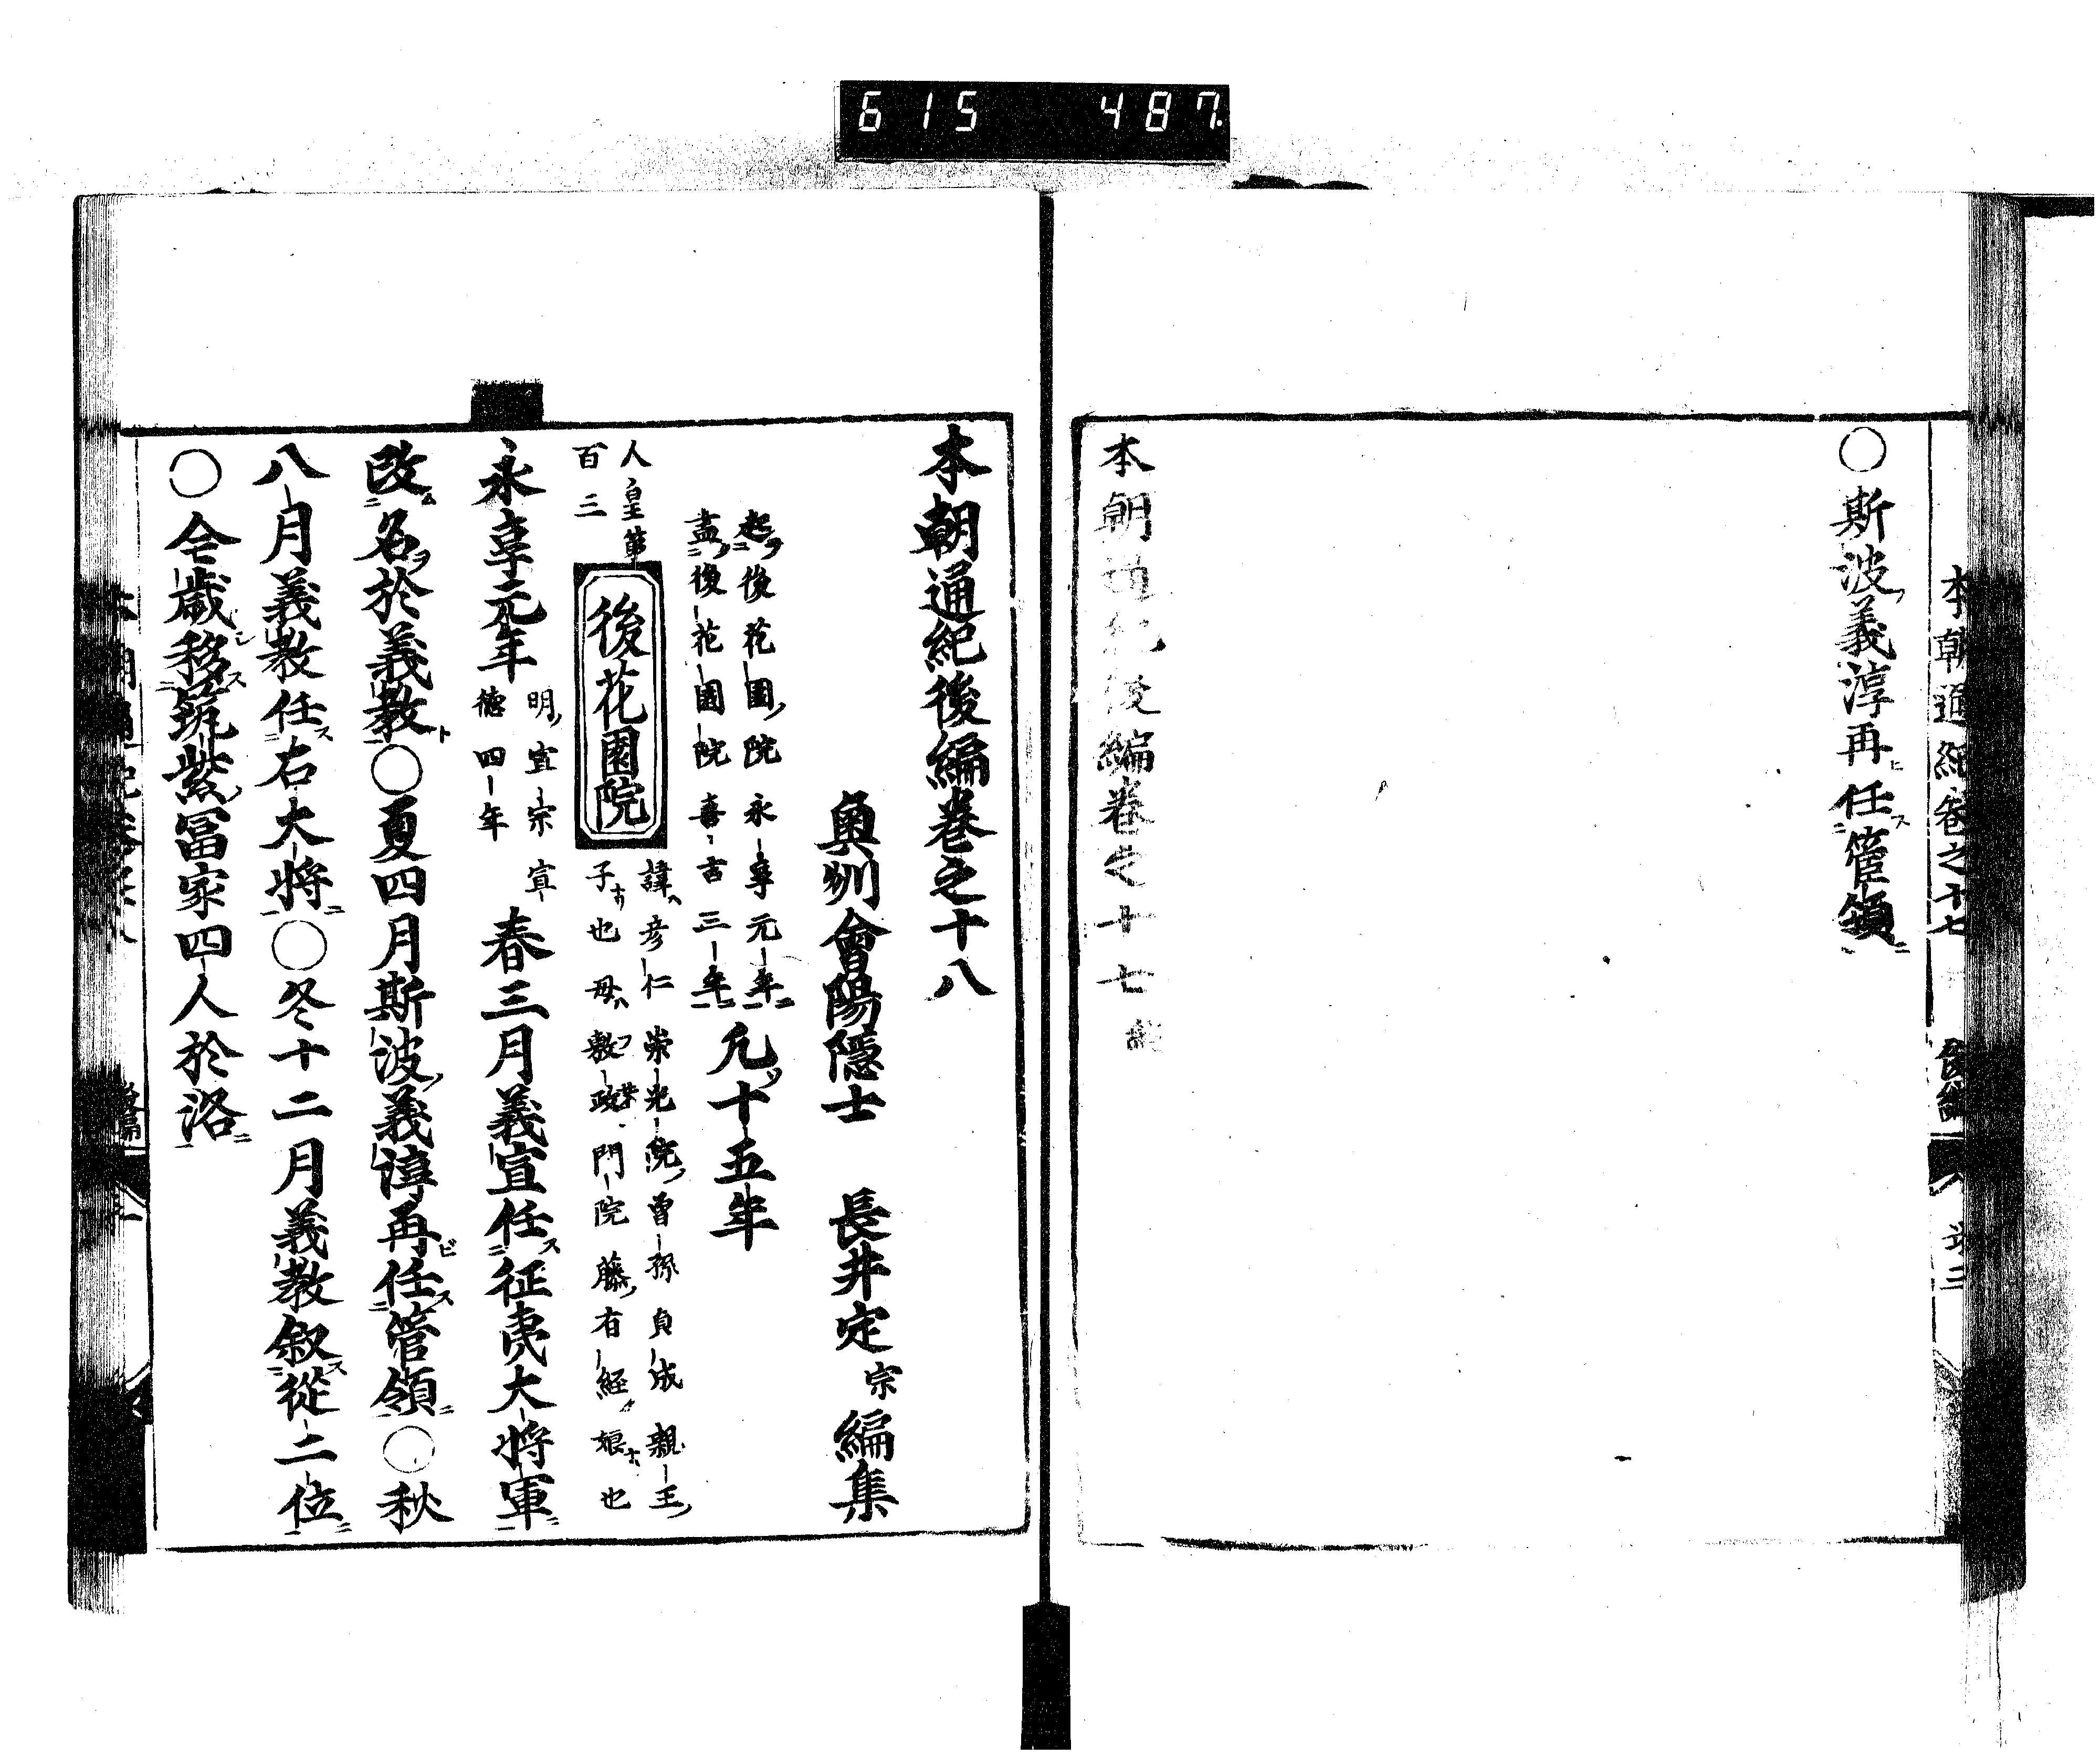 615 487.
本朝通紀卷之十七 後編
○斯波義淳再任管領
本朝通紀後編卷之十七
本朝通紀後編卷之十八
奥州會陽隱士 長井定宗編集
起後花園院永享元年
盡後花園院喜吉三年
凡十五年
人皇第
百三
後花園院
諱彦仁崇光院曽孫貞成親王
子也母敷政門院藤有經娘也
永享元年
明宣宗宣
德四年
春三月義宣任征夷大將軍
改名於義教○夏四月斯波義淳再任管領○秋
八月義教任右大將○冬十二月義教叙從二位
○今歳移筑紫冨家四人於洛